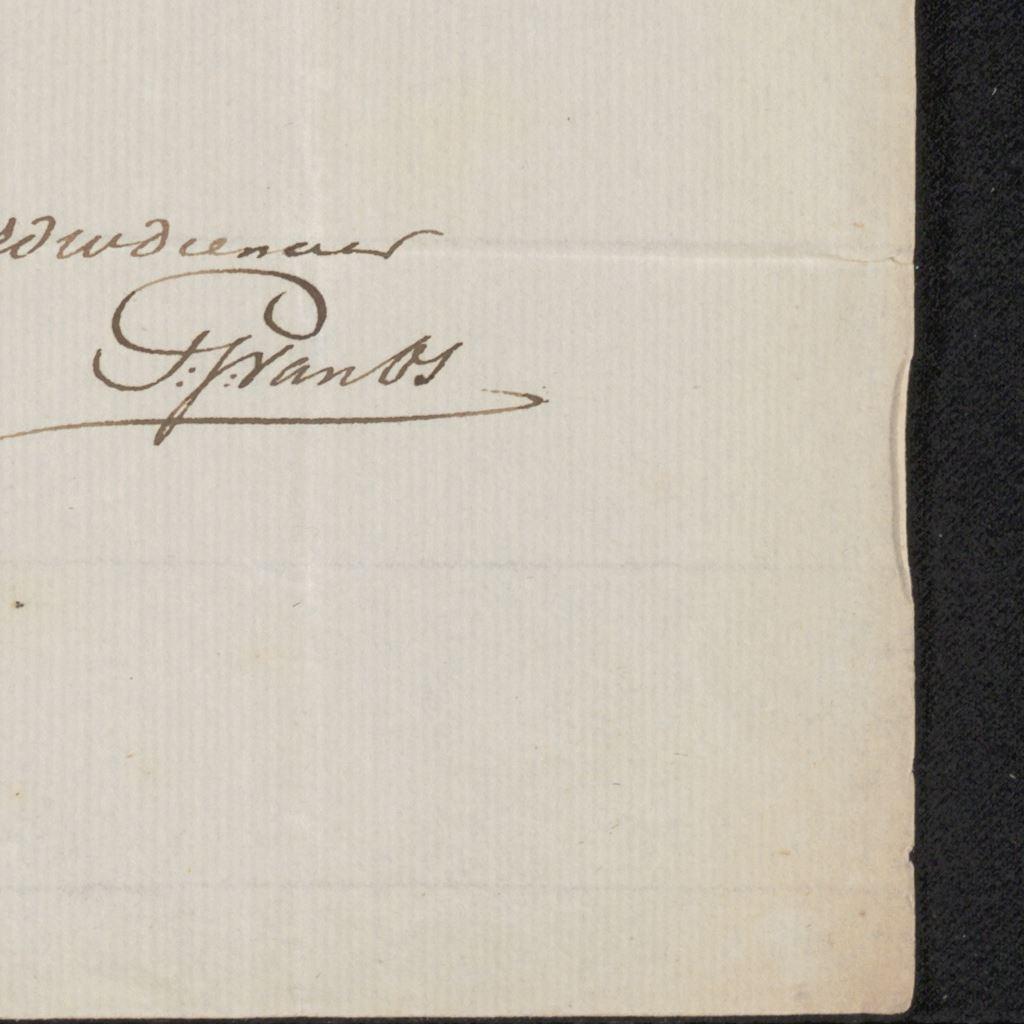 Edw dienaer
P: J: Van Os